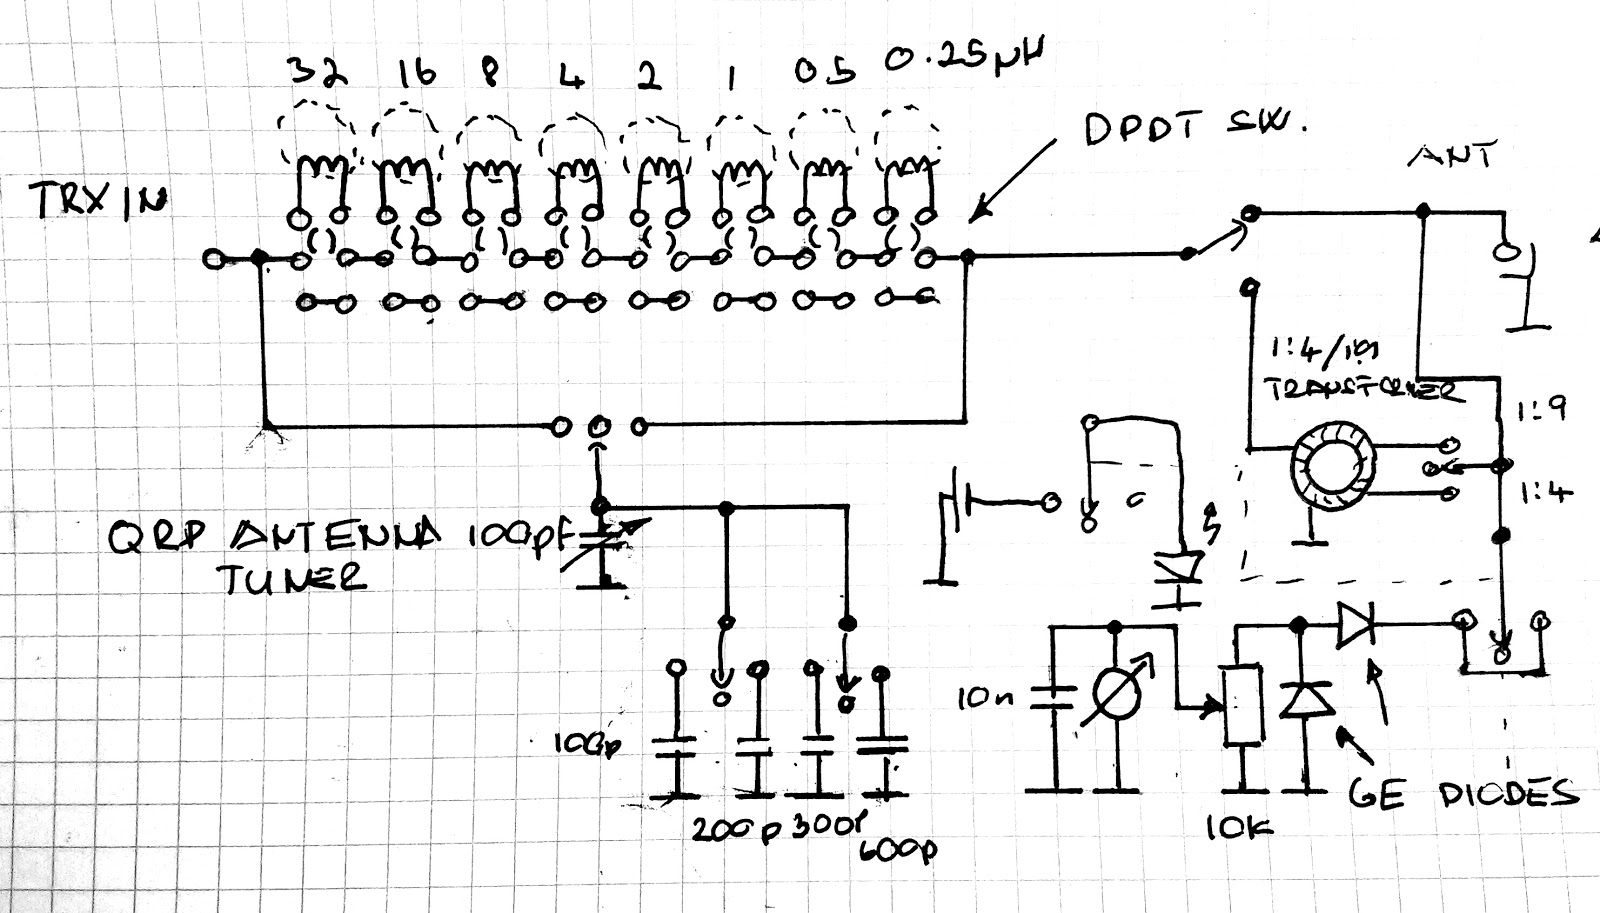 32 16 8 4 2 1 0.5 0.25µH
DPDT SW.
ANT
TRX IN
1:4/1:9
TRANSFORMER
1:9
1:4
QRP ANTENNA
TUNER
100pF
10n
100p
200p
300p
600p
10K
GE DIODES